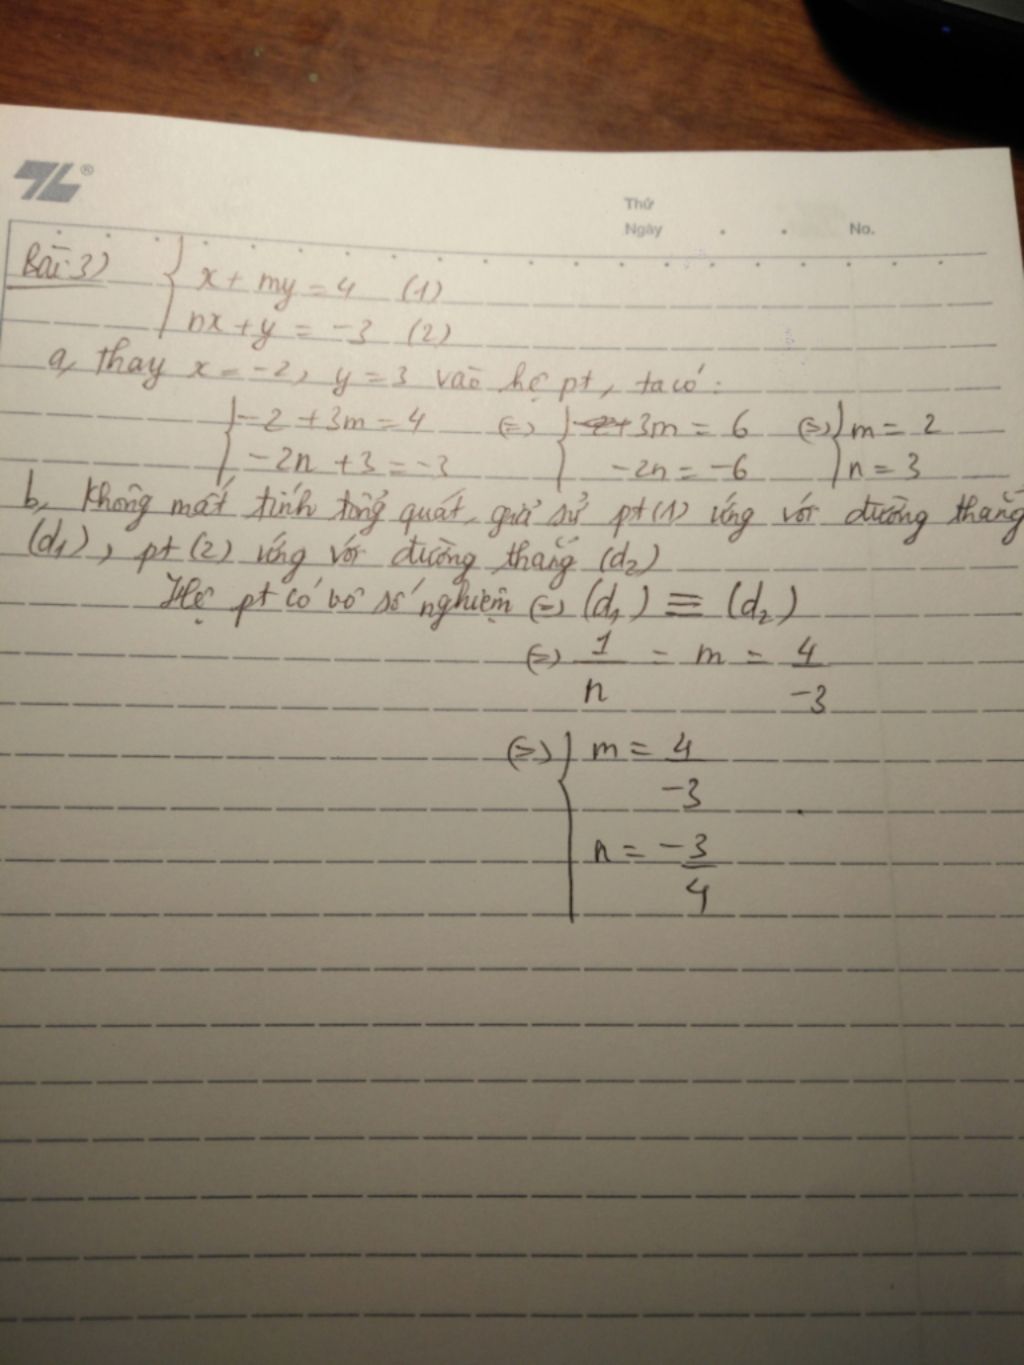 TL®
Thứ
Ngày . . No.
Bài 3) { x + my = 4 (1)
nx + y = -3 (2)
a, thay x = -2, y = 3 vào hệ pt, ta có:
{ -2 + 3m = 4 (=) { 3m = 6 (=) { m = 2
-2n + 3 = -3 -2n = -6 n = 3
b, Không mất tính tổng quát, giả sử pt (1) ứng với đường thẳng
(d₁), pt (2) ứng với đường thẳng (d₂)
Hệ pt có vô số nghiệm (=) (d₁) ≡ (d₂)
(=) 1/n = m = 4/-3
(=) { m = 4/-3
n = -3/4